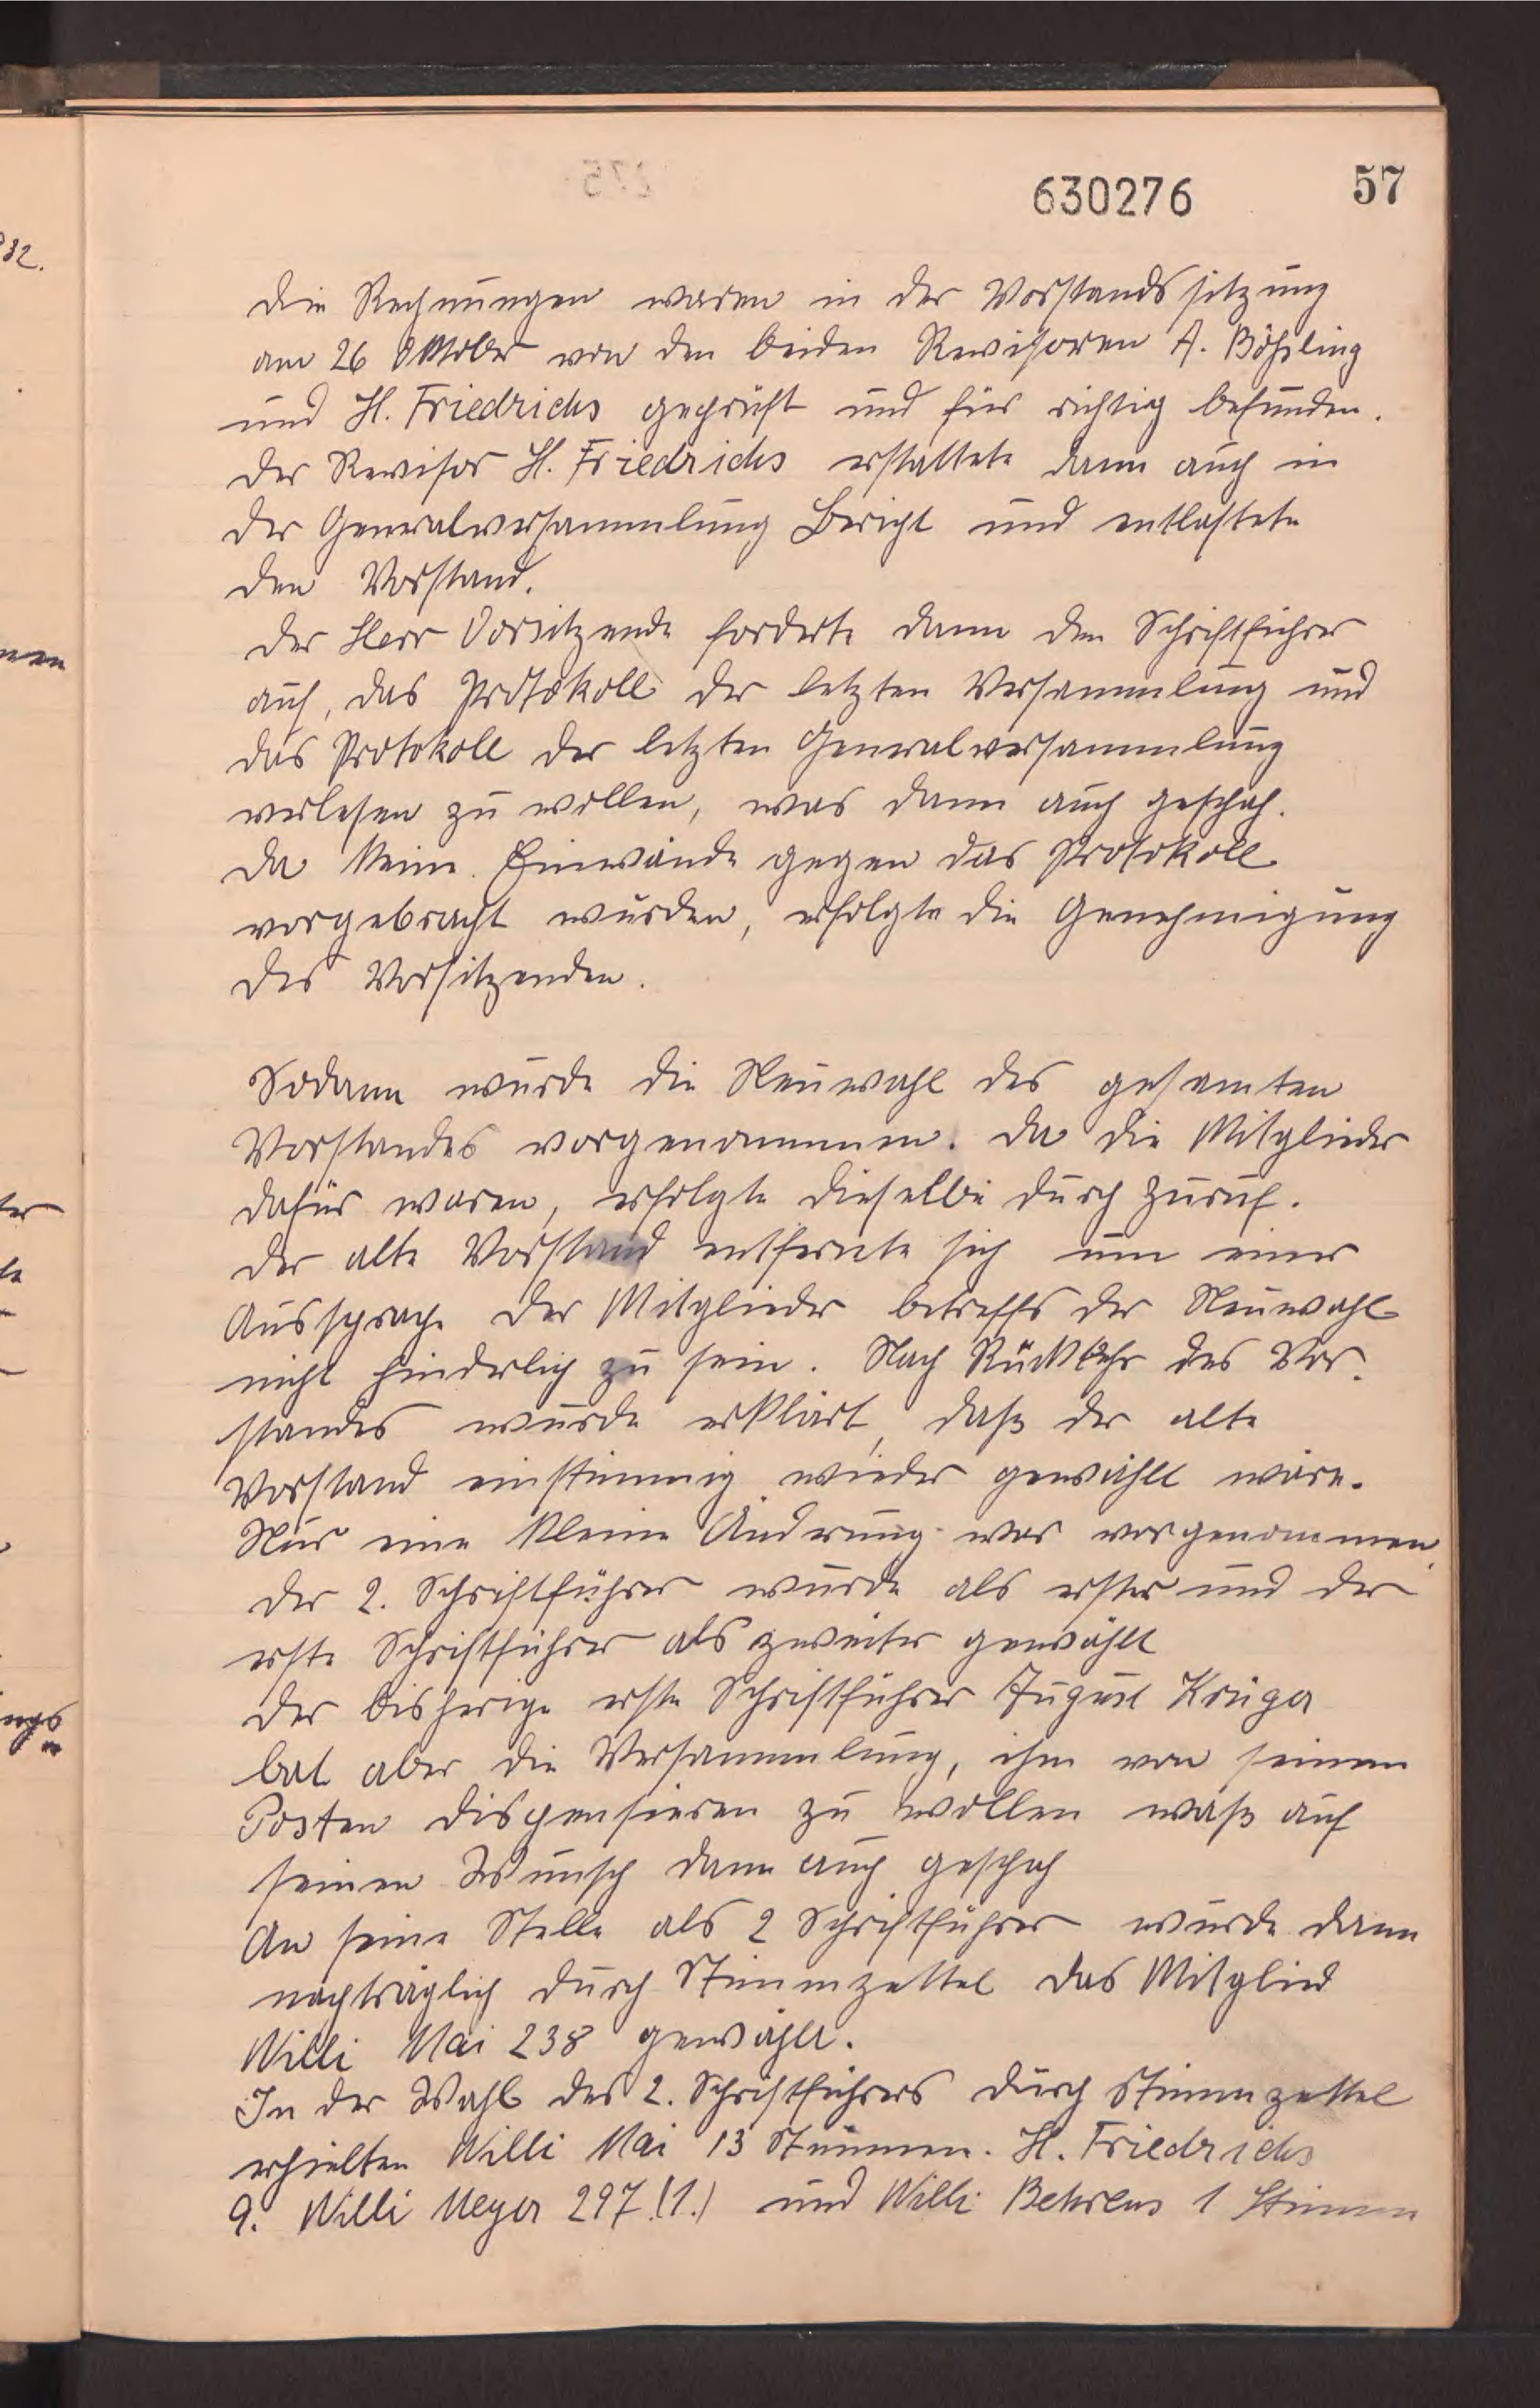 630276 57
die Rechnungen waren in der Vorstandssitzung
am 26 Oktober von den beiden Revisoren A. Böhsling
und H. Friedrichs geprüft und für richtig befunden.
Der Revisor H. Friedrichs erstattete dann auch in
der Generalversammlung Bericht und entlastete
den Vorstand.
Der Herr Vorsitzende forderte dann den Schriftführer
auf, das Protokoll der letzten Versammlung und
das Protokoll der letzten Generalversammlung
verlesen zu wollen, was dann auch geschah.
Da keine Einwände gegen das Protokoll
vorgebracht wurden, erfolgte die Genehmigung
des Vorsitzenden.
Sodann wurde die Neuwahl des gesamten
Vorstandes vorgenommen. Da die Mitglieder
dafür waren, erfolgte dieselbe durch Zuruf.
Der alte Vorstand entfernte sich um einer
Aussprache der Mitglieder betreffs der Neuwahl
nicht hinderlich zu sein. Nach Rückkehr des Vor-
standes wurde erklärt, daß der alte
Vorstand einstimmig wieder gewählt wäre.
Nur eine kleine Änderung war vorgenommen.
Der 2. Schriftführer wurde als erster und der
erste Schriftführer als zweiter gewählt
Der bisherige erste Schriftführer August Krüger
bat aber die Versammlung, ihm von seinem
Posten dispensieren zu wollen waß auf
seinen Wunsch dann auch geschah
An seine Stelle als 2 Schriftführer wurde dann
nachträglich durch Stimmzettel das Mitglied
Willi Mai 238 gewählt.
In der Wahl des 2. Schriftführers durch Stimmzettel
erhielten Willi Mai 13 Stimmen. H. Friedrichs
9. Willi Meyer 297 (1.) und Willi Behrens 1 Stimme